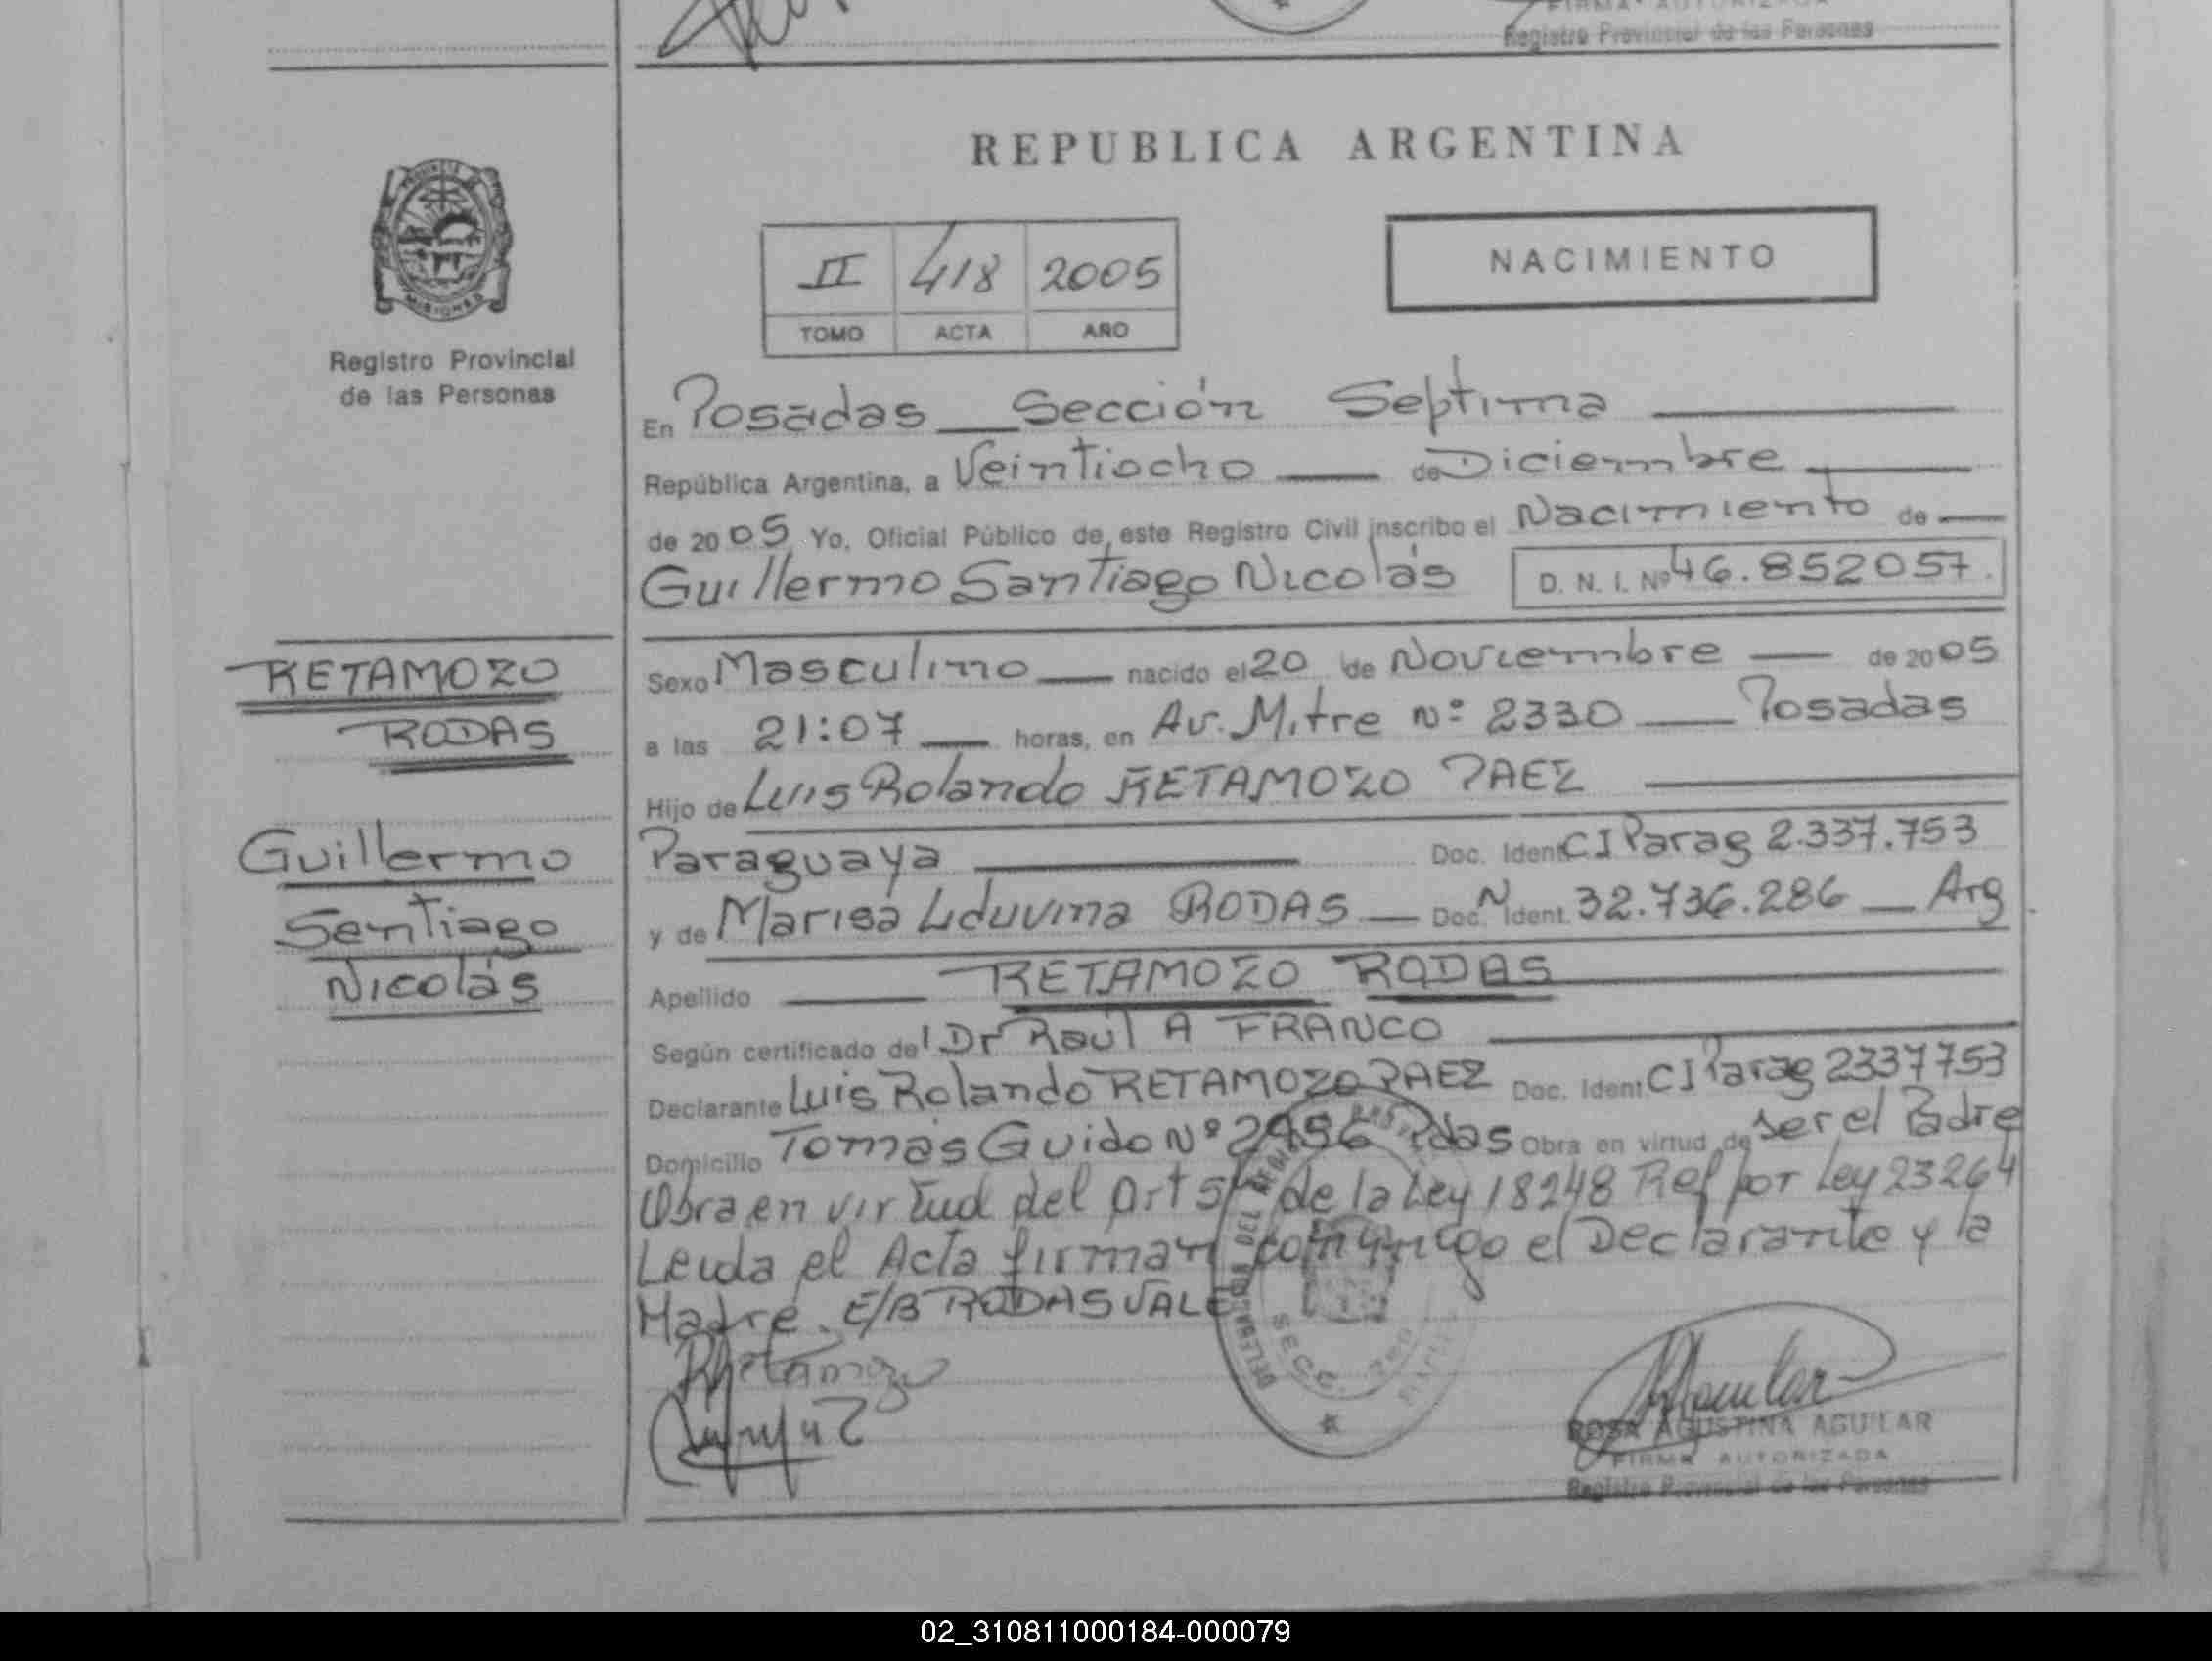 Registro Provincial de las Personas
REPUBLICA ARGENTINA
II 418 2005
TOMO ACTA AÑO
NACIMIENTO
Registro Provincial
de las Personas
En Posadas Sección Septima
República Argentina, a Veintiocho de Diciembre
de 2005 Yo, Oficial Público de este Registro Civil inscribo el Nacimiento de
Guillermo Santiago Nicolás D. N. I. Nº 46.852057.
RETAMOZO
RODAS
Guillermo
Santiago
Nicolás
Sexo Masculino nacido el 20 de Noviembre de 2005
a las 21:07 horas, en Av. Mitre Nº 2330 Posadas
Hijo de Luis Rolando RETAMOZO PAEZ
Paraguaya Doc. Ident. CI Parag 2.337.753
y de Marisa Liduvina RODAS Doc. N Ident. 32.736.286 Arg
Apellido RETAMOZO RODAS
Según certificado del Dr Raúl A FRANCO
Declarante Luis Rolando RETAMOZO PAEZ Doc. Ident. CI Parag 2337753
Domicilio Tomás Guido Nº Pdas Obra en virtud de ser el Padre
Obra en virtud del Art de la Ley 18248 Ref por Ley 23264
Leida el Acta firman conmigo el Declarante y la
Madre. E/B RODAS VALE
SECC.
ROSA AGUSTINA AGUILAR
FIRMA AUTORIZADA
Registro Provincial de las Personas
02_310811000184-000079